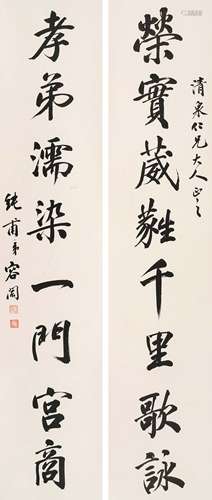 清泉仁兄大人正之
榮實葳蕤千里歌詠
孝弟濡染一門宮商
純甫弟容閎